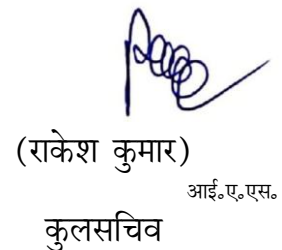 (राकेश कुमार)
आई॰ए॰एस॰
कुलसचिव